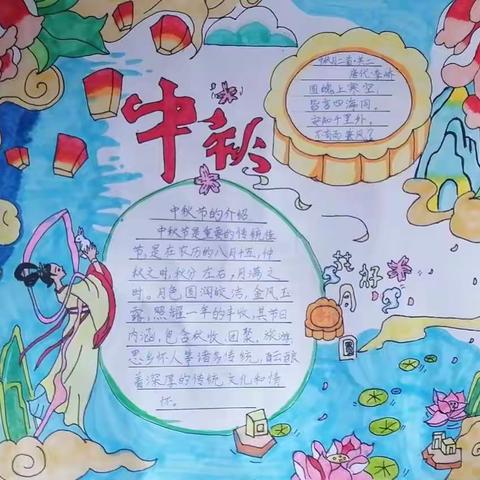 中秋
中秋月二首·其二
唐代·李峤
圆魄上寒空,
皆言四海同。
安知千里外,
不有雨兼风?
中秋节的介绍
中秋节是重要的传统佳
节,是在农历的八月十五,仲
秋之时,秋分左右,月满之
时。月色圆润皎洁,金风玉
露,照耀一年的丰收,其节日
内涵,包含秋收,团聚,旅游
思乡怀人等诸多传统,酝酿
着深厚的传统文化和情
怀。
花好
月圆